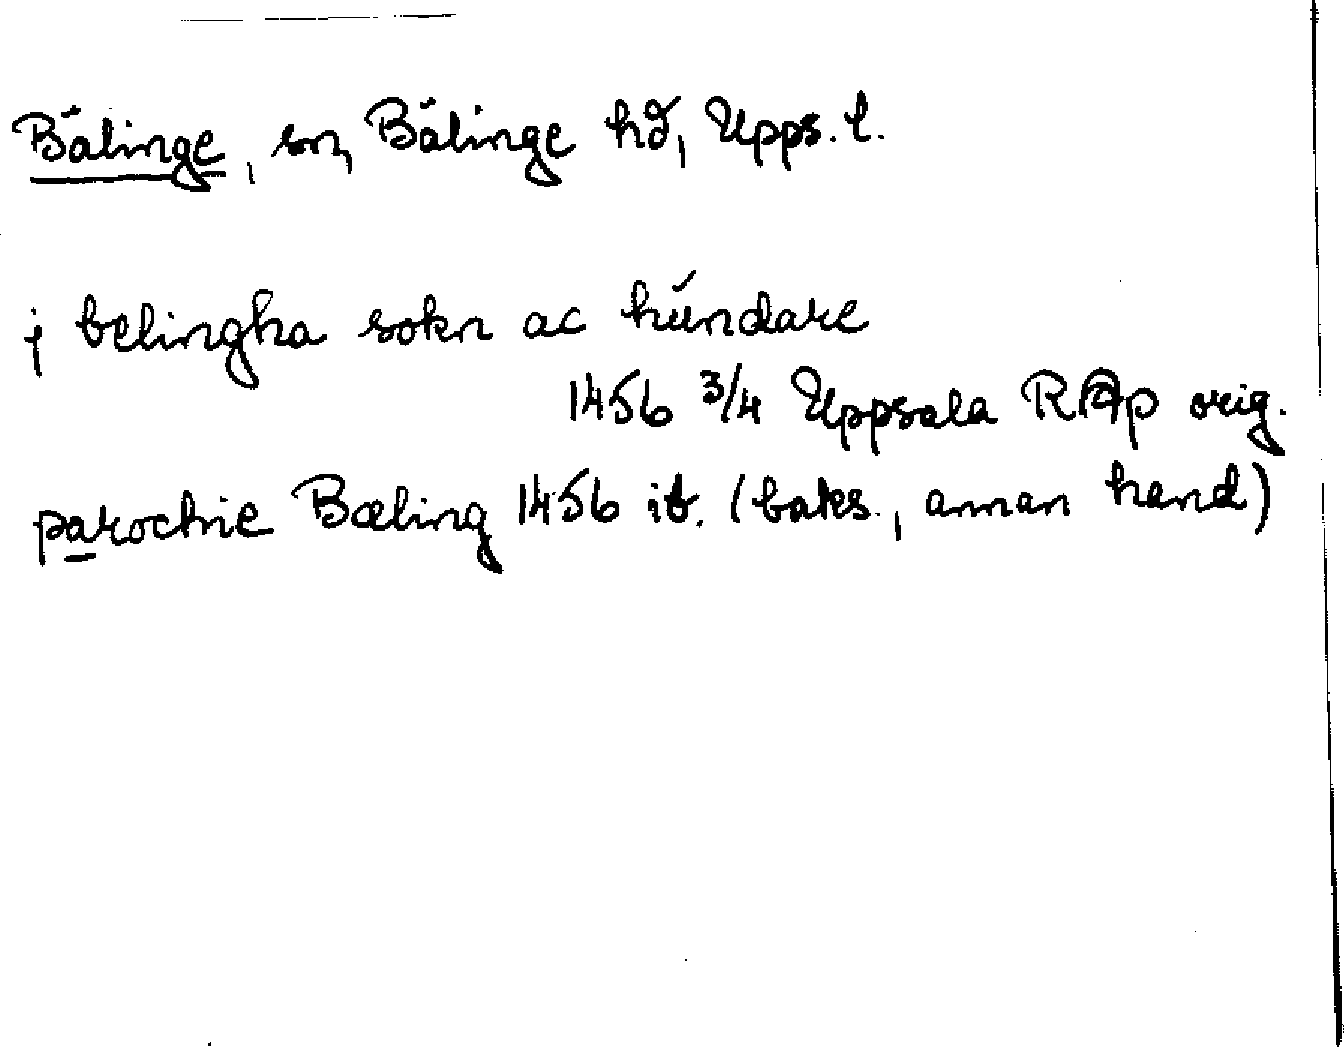 Bälinge, sn, Bälinge hd, Upps. l.
j belingha sokn ac húndare
1456 3/4 Uppsala RAp orig.
parochie Bæling 1456 ib. (baks., annan hand)